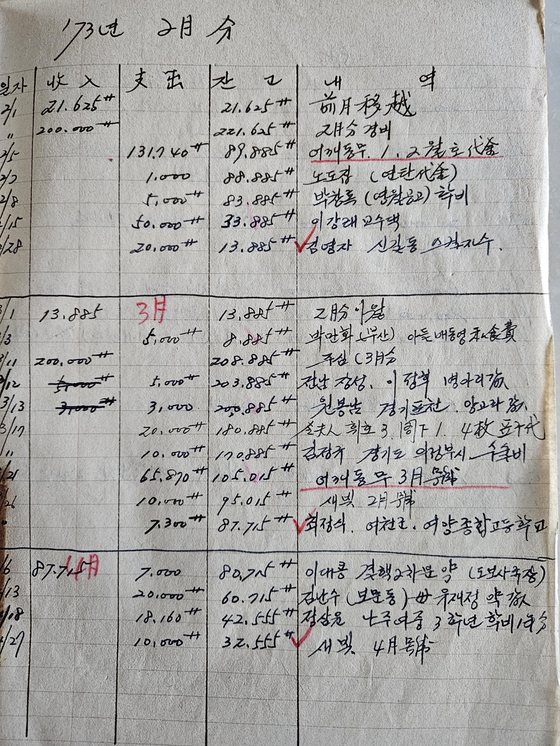 '73년 2月分
일자 收入 支出 잔고 내역
2/1 21.625 21.625 前月移越
" 200.000 221.625 2月分 경비
2/5 131.740 89.885 어깨동무 1.2월호 代金
2/7 1.000 88.885 노도집 (연탄代金)
2/8 5.000 83.885 박창록 학비
2/15 50.000 33.885 이강래 교수댁
2/28 20.000 13.885 김영자 신길동
3月
3/1 13.885 13.885 2月分 이월
3/3 5.000 8.885 박만화 (부산) 아들
3/11 200.000 208.885 (3月分
3/12 5,000 5,000 203.885 전남 장성. 이
3/13 3,000 3,000 200.885 원봉남 경기포천.
3/17 20.000 180.885 3. 4枚
" 10.000 170.885 경기도 의정부시 수술비
3/21 65.870 105.015 어깨동무 3月号
10.000 95.015 새빛 2月号
7.300 87.715 최정식. 여천군. 여양종합고등학교
4月
4/6 87.715 7.000 80.715 이대종 결핵2차분약
4/13 20.000 60.715 김난수 (보문동) 유재정 약값
4/18 18.160 42.555 정상윤 나주여중 3학년 학비
4/27 10,000 32.555 새빛 4月号